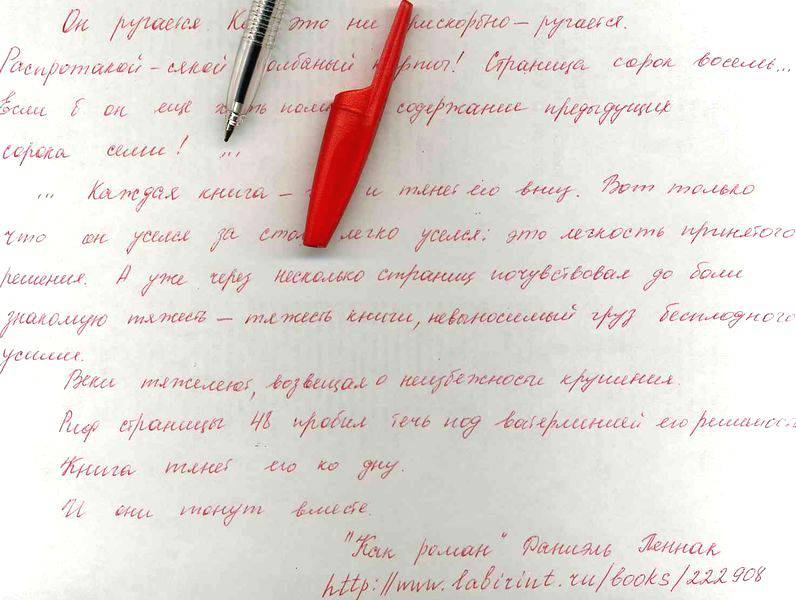 Он ругается. Ка это ни прискорбно — ругается.
Распротакой-сякой долбаный кирпич! Страница сорок восемь...
Если б он ещё хоть помн содержание предыдущих
сорока семи! ...
... Каждая книга — и тянет его вниз. Вот только
что он уселся за стол легко уселся: это легкость принятого
решения. А уже через несколько страниц почувствовал до боли
знакомую тяжесть — тяжесть книги, невыносимый груз бесплодного
усилия.
Веки тяжелеют, возвещая о неизбежности крушения.
Риф страницы 48 пробил течь под ватерлинией его решимост
Книга тянет его ко дну.
И они тонут вместе.
"Как роман" Даниэль Пеннак
http://www.labirint.ru/books/222908